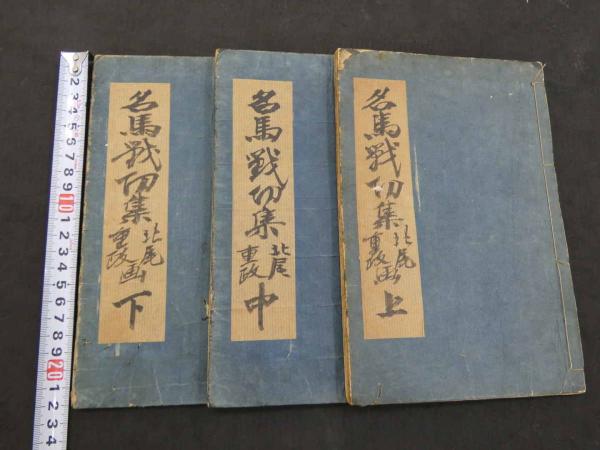 名馬戦功集
北尾
重政画
上
名馬戦功集
北尾
重政
中
名馬戦功集
北尾
重政画
下
1 2 3 4 5 6 7 8 9 10 1 2 3 4 5 6 7 8 9 20 1